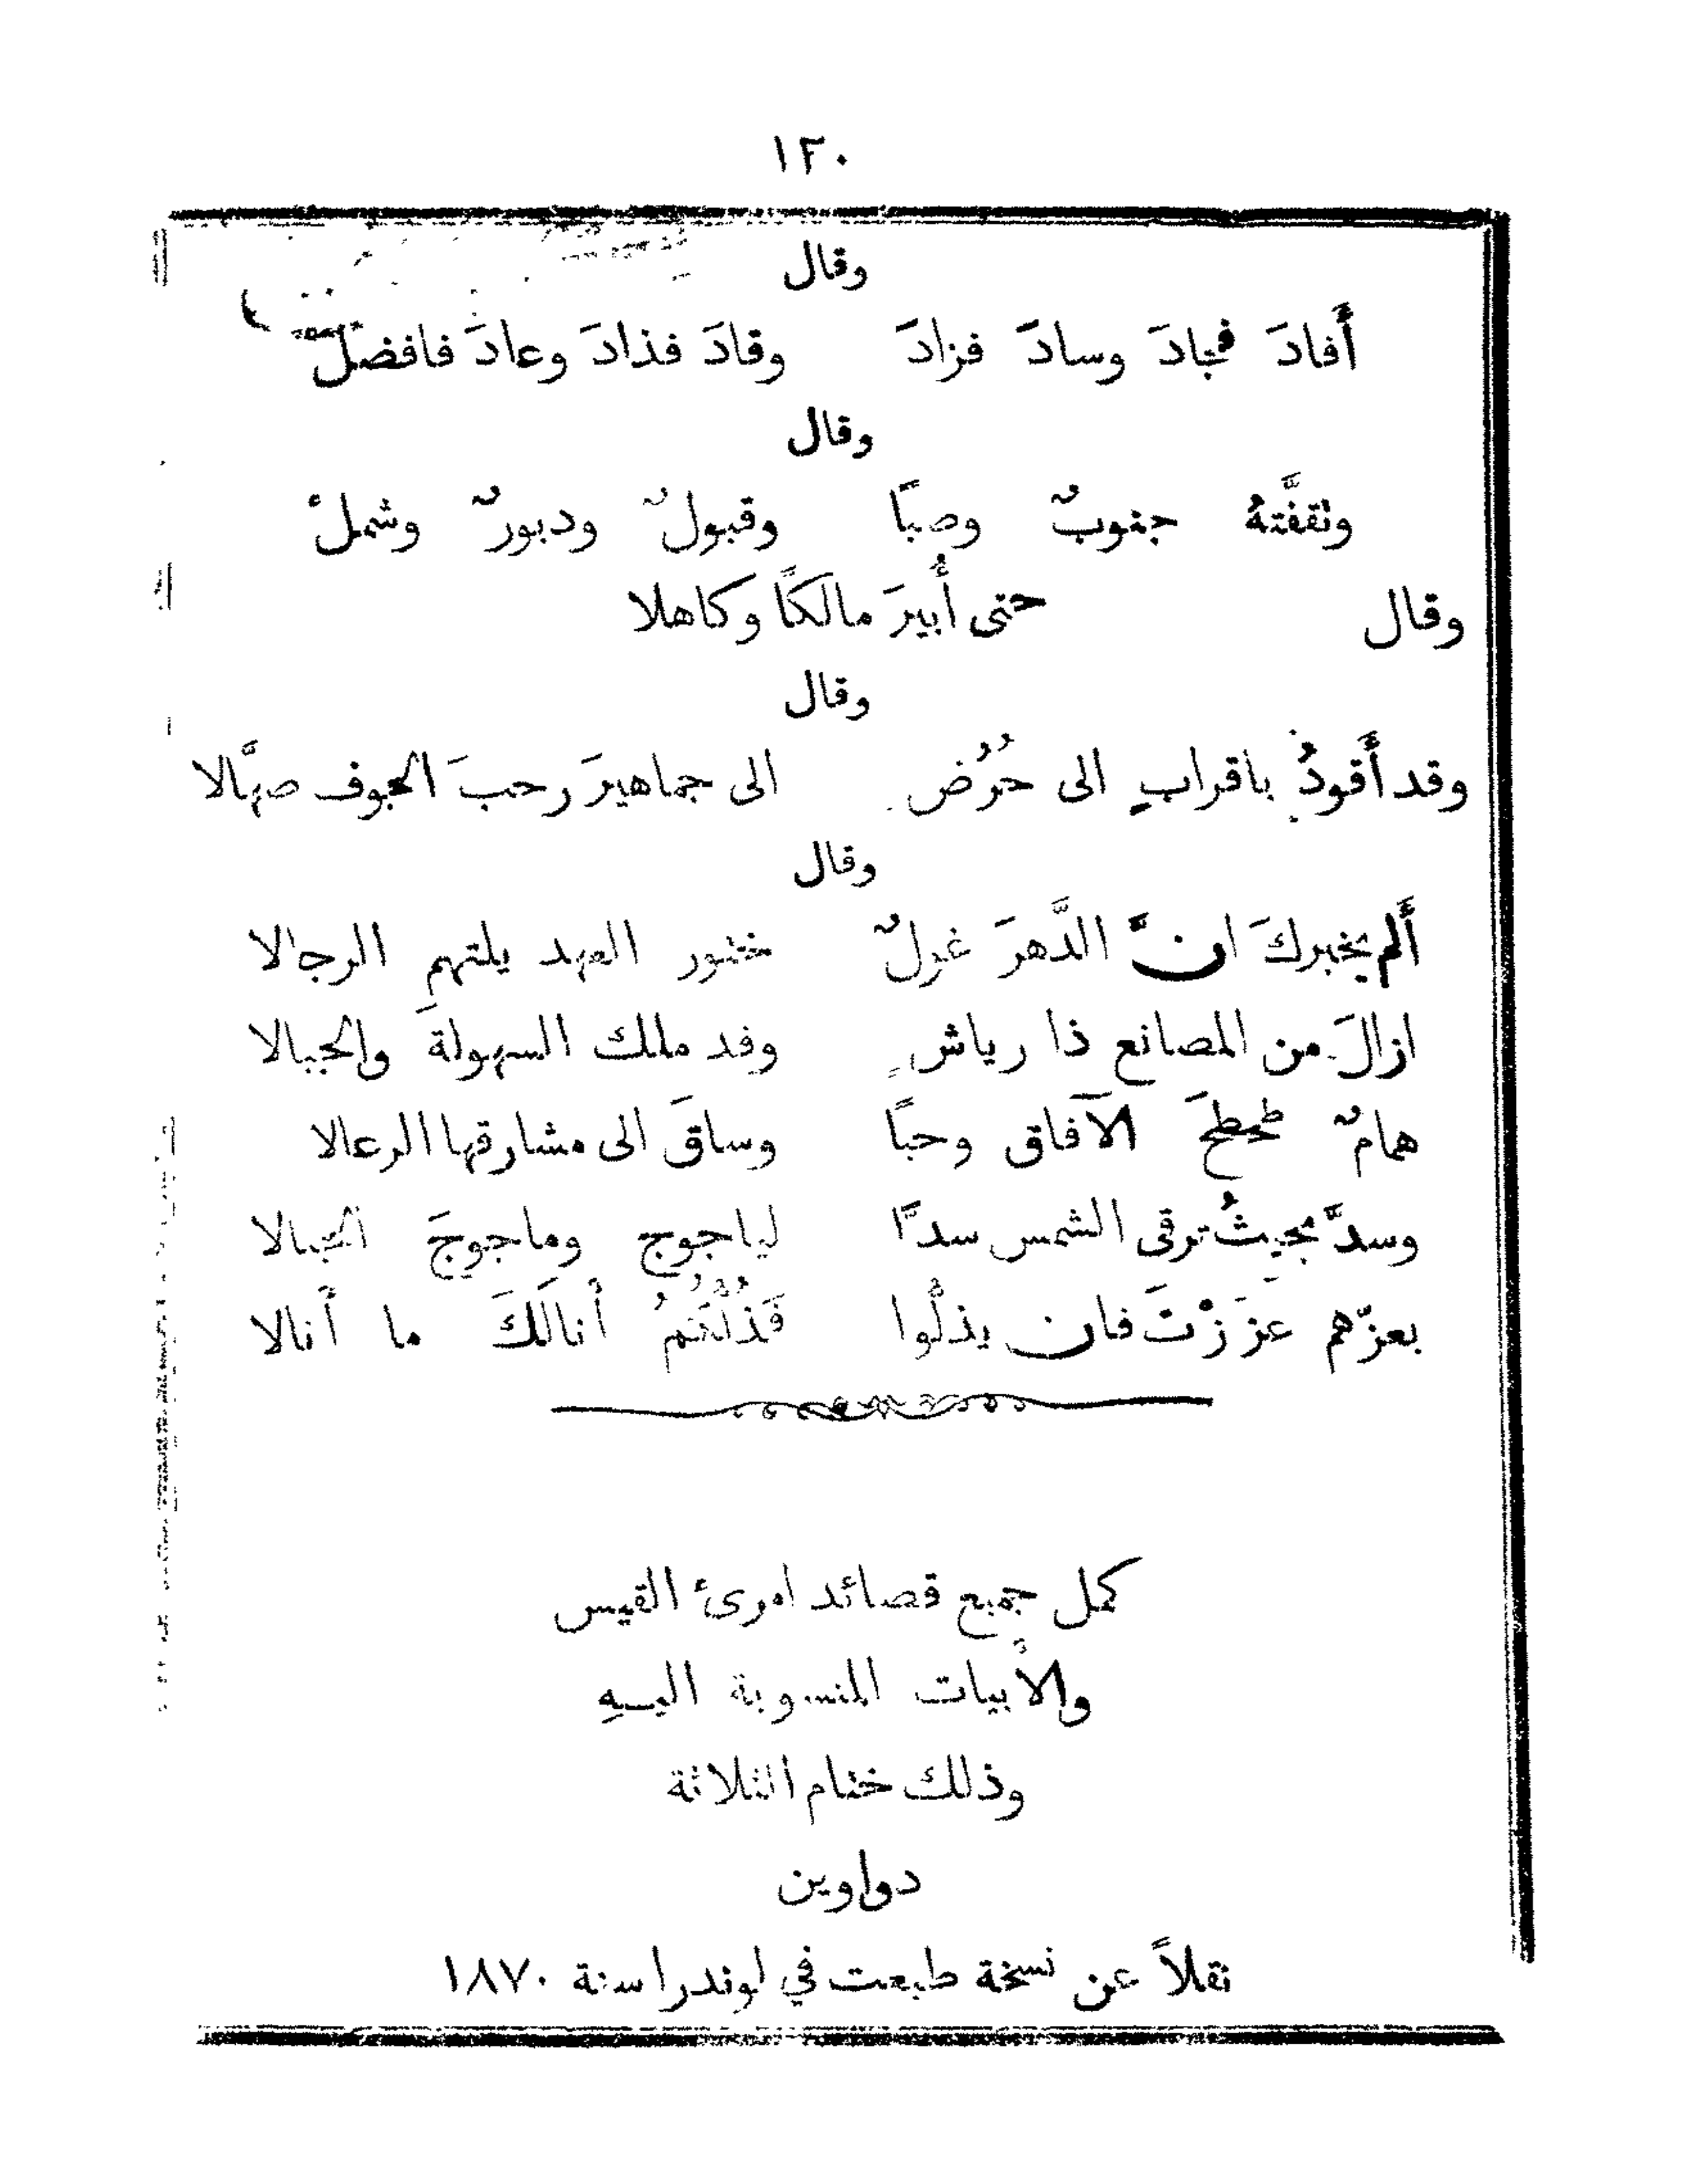 ١٢٠
وقال
أَفادَ فجادَ وسادَ فزادَ وقادَ فذادَ وعادَ فافضلْ
وقال
وثقفَّتهُ جنوبٌ وصبًا وقبولٌ ودبورٌ وشملْ
وقال حتى أُبيرَ مالكًا وكاهلا
وقال
وقد أَقودُ باقرابٍ الى حُرُضٍ الى جماهيرَ رحبَ الجوف صهَّالا
وقال
أَلم يخبركَ انَّ الدَّهرَ غولٌ ختور العهد يلتهم الرجالا
ازالَ من المصانع ذا رياشٍ وقد ملك السهولةَ والجبالا
همامٌ طحطحَ الآفاق وحبًا وساقَ الى مشارقها الرعالا
وسدَّ بحيثُ ترقى الشمس سدًّا لياجوج وماجوجَ الجبالا
بعزّهم عَزَزْتَ فان يذلُّوا فَذُلُّهُمُ أَنالَكَ ما أَنالا
كمل جميع قصائد امرئ القيس
والأبيات المنسوبة اليهِ
وذلك ختام الثلاثة
دواوين
نقلاً عن نسخة طبعت في لوندرا سنة ١٨٧٠